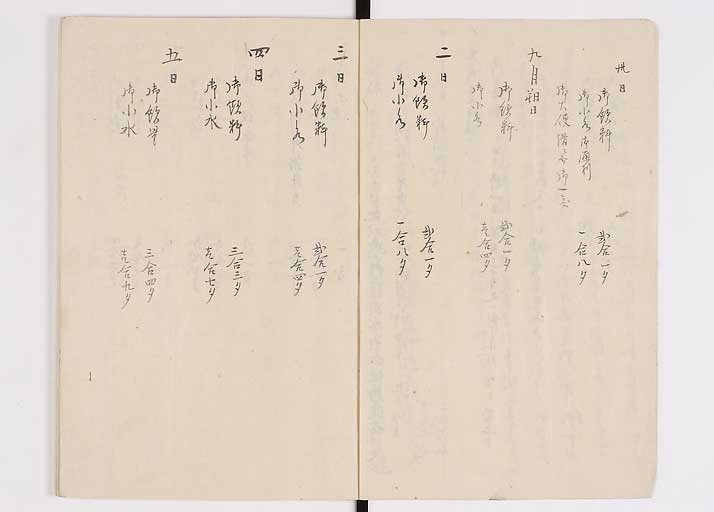 卅日
御飲料 弐合一夕
御小水 御通利 一合八夕
御大便
九月朔日
御飲料 弐合一夕
御小水 壱合四夕
二日
御飲料 弐合一夕
御小水 一合八夕
三日
御飲料 弐合一夕
御小水 壱合四夕
四日
御飲料 三合三夕
御小水 壱合七夕
五日
御飲量 三合四夕
御小水 壱合九夕